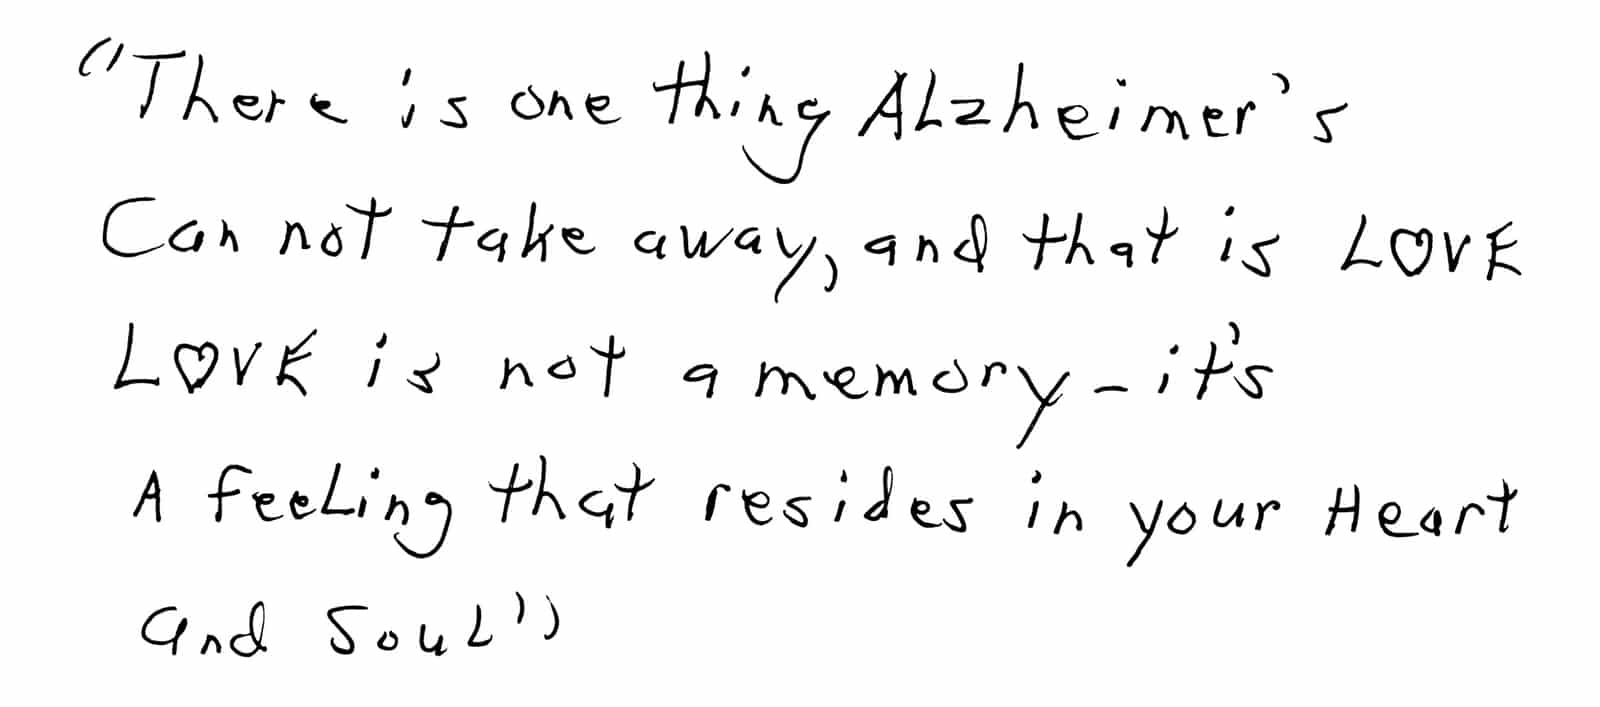 "There is one thing ALzheimer's
Can not take away, and that is L♡VE
L♡VE is not a memory - it's
A feeLing that resides in your Heart
and SouL"